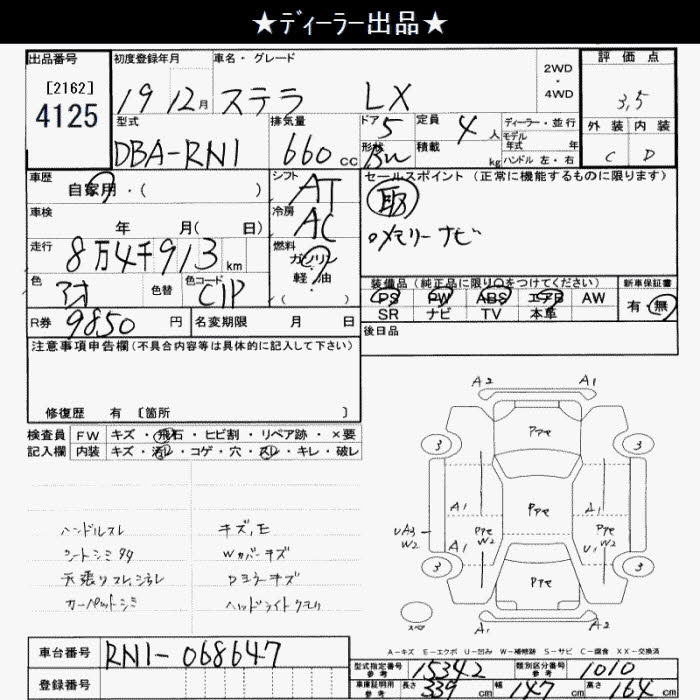 ★ディーラー出品★
出品番号
[2162]
4125
初度登録年月
19 12月
車名・グレード
ステラ LX
2WD
・
4WD
評価点
3,5
外装 内装
C D
型式
DBA-RN1
排気量
660 cc
ドア 5
形状 Bu
定員 4 人
積載 kg
ディーラー・並行
モデル
年式 年
ハンドル 左・右
車歴
自家用・( )
シフト AT
セールスポイント (正常に機能するものに限ります)
取
○メモリーナビ
車検
年 月( 日)
冷房 AC
走行
8万4千913 km
燃料
ガソリン
軽・油
色 アオ
色替
色コード C1P
装備品(純正品に限り○をつけてください)
新車保証書
PS PW ABS エアB AW
有・無
SR ナビ TV 本革
R券 9850 円
名変期限 月 日
後日品
注意事項申告欄(不具合内容等は具体的に記入して下さい)
修復歴 有 〔箇所 〕
検査員 FW キズ・飛石・ヒビ割・リペア跡・×要
記入欄 内装 キズ・汚レ・コゲ・穴・スレ・キレ・破レ
ハンドルスレ キズ,E
シートシミ Wカバーキズ
天張りスレ,シミ
カーペットシミ ヘッドライトクモリ
A2 A1
Ppe
3 3
A1 Ppe A1
A1 Ppe W2 Ppe W2 U1
UA3 W2
3 3
Ppe
スペア
A1 A2
A-キズ E-エクボ U-凹み W-補修跡 S-サビ C-腐食 XX-交換済
車台番号 RN1-068647
登録番号
型式指定番号 参考 15342
類別区分番号 参考 1010
車庫証明用 参考 長さ 339 cm 幅 147 cm 高さ 164 cm